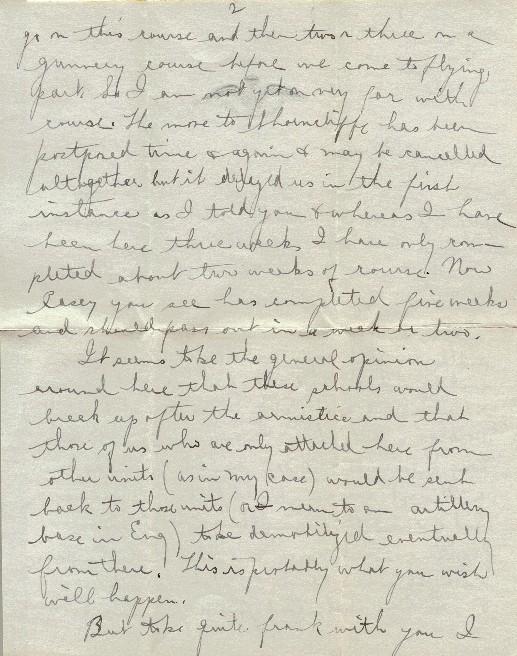 2
go on this course and then two or three on a
gunnery course before we come to flying
part. So I am not yet on very far with
course. The move to Shorncliffe has been
postponed time & again & may be cancelled
altogether but it delayed us in the first
instance as I told you & whereas I have
been here three weeks I have only com-
pleted about two weeks of course. Now
Casey you see has completed five weeks
and should pass out in a week or two.
It seems to be the general opinion
around here that these schools would
break up after the armistice and that
those of us who are only attached here from
other units (as in my case) would be sent
back to those units (or I mean to an artillery
base in Eng) to be demobilized eventually
from there. This is probably what you wish
will happen.
But to be quite frank with you I